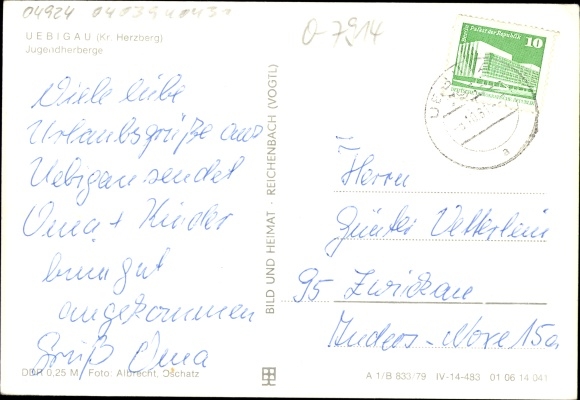 04924 0403940439
O-7914
UEBIGAU (Kr. Herzberg)
Jugendherberge
Viele liebe
Urlaubsgrüße aus
Uebigau sendet
Oma + Kinder
bin gut
angekommen
Gruß Oma
DDR 0,25 M Foto: Albrecht, Oschatz
BILD UND HEIMAT · REICHENBACH (VOGTL)
Palast der Republik
10
Herrn
Günter Vetterlein
95 Zwickau
Anders-Nexe 15a
A 1/B 833/79 IV-14-483 01 06 14 041